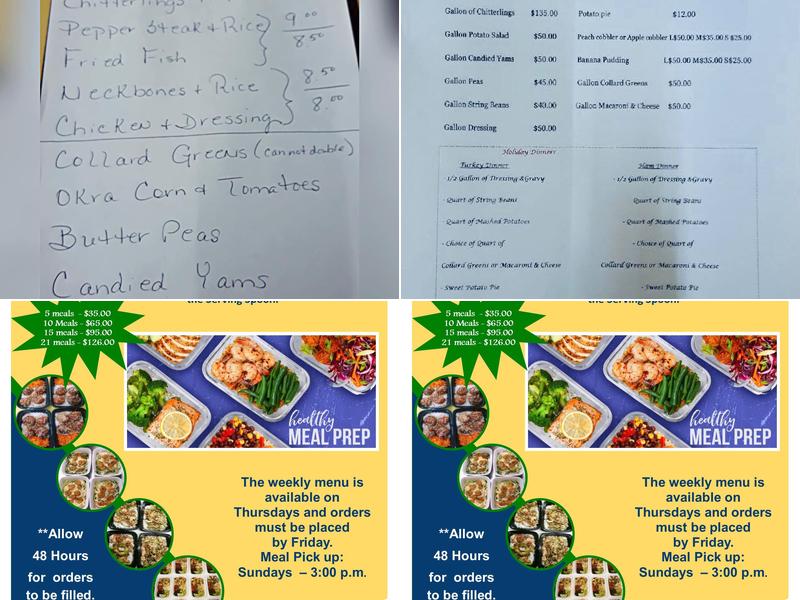 Chitterlings
Pepper Steak + Rice
9.00
8.50
Fried Fish
Neckbones + Rice
8.50
8.00
Chicken + Dressing
Collard Greens (cannot double)
Okra Corn & Tomatoes
Butter Peas
Candied Yams
Gallon of Chitterlings $135.00
Potato pie $12.00
Gallon Potato Salad $50.00
Peach cobbler or Apple cobbler L$50.00 M$35.00 S $25.00
Gallon Candied Yams $50.00
Banana Pudding L$50.00 M$35.00 S$25.00
Gallon Peas $45.00
Gallon Collard Greens $50.00
Gallon String Beans $40.00
Gallon Macaroni & Cheese $50.00
Gallon Dressing $50.00
Holiday Dinners
Turkey Dinner
- 1/2 Gallon of Dressing &Gravy
- Quart of String Beans
- Quart of Mashed Potatoes
- Choice of Quart of
Collard Greens or Macaroni & Cheese
- Sweet Potato Pie
Ham Dinner
- 1/2 Gallon of Dressing &Gravy
Quart of String Beans
- Quart of Mashed Potatoes
- Choice of Quart of
Collard Greens or Macaroni & Cheese
- Sweet Potato Pie
the serving spoon!
5 meals - $35.00
10 Meals - $65.00
15 meals - $95.00
21 meals - $126.00
healthy
MEAL PREP
The weekly menu is
available on
Thursdays and orders
must be placed
by Friday.
Meal Pick up:
Sundays – 3:00 p.m.
**Allow
48 Hours
for orders
to be filled.
the serving spoon!
5 meals - $35.00
10 Meals - $65.00
15 meals - $95.00
21 meals - $126.00
healthy
MEAL PREP
The weekly menu is
available on
Thursdays and orders
must be placed
by Friday.
Meal Pick up:
Sundays – 3:00 p.m.
**Allow
48 Hours
for orders
to be filled.